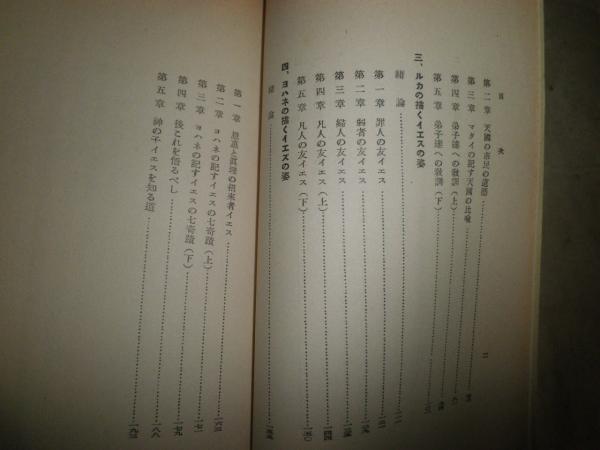 目次
第二章 天國の市民の道徳
第三章 マタイの記す天國の比喩
第四章 弟子達への教訓(上)
第五章 弟子達への教訓(下)
三、ルカの描くイエスの姿
緒論
第一章 罪人の友イエス
第二章 弱者の友イエス
第三章 婦人の友イエス
第四章 凡人の友イエス(上) 一四四
第五章 凡人の友イエス(下) 一五〇
四、ヨハネの描くイエスの姿
緒論
第一章 恩恵と眞理の招来者イエス 一六三
第二章 ヨハネの記すイエスの七奇蹟(上) 一七一
第三章 ヨハネの記すイエスの七奇蹟(下) 一七九
第四章 後これを悟るべし 一八八
第五章 神の子イエスを知る道